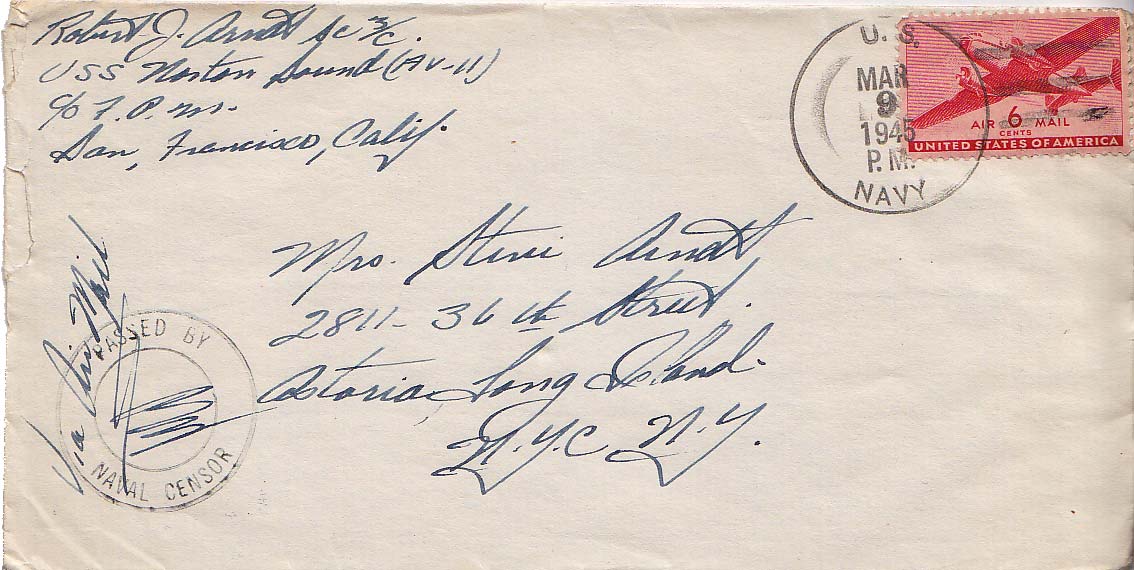 Robert J. Arndt SC 3/C.
USS Norton Sound (AV-11)
c/o F.P.M.
San, Francisco, Calif.
U. S.
MAR
9
1945
P.M.
NAVY
AIR 6 MAIL
CENTS
UNITED STATES OF AMERICA
Mrs. Steve Arndt
2811- 36 th Street.
Astoria, Long Island.
N.Y.C N.Y.
Via Air Mail
PASSED BY
NAVAL CENSOR